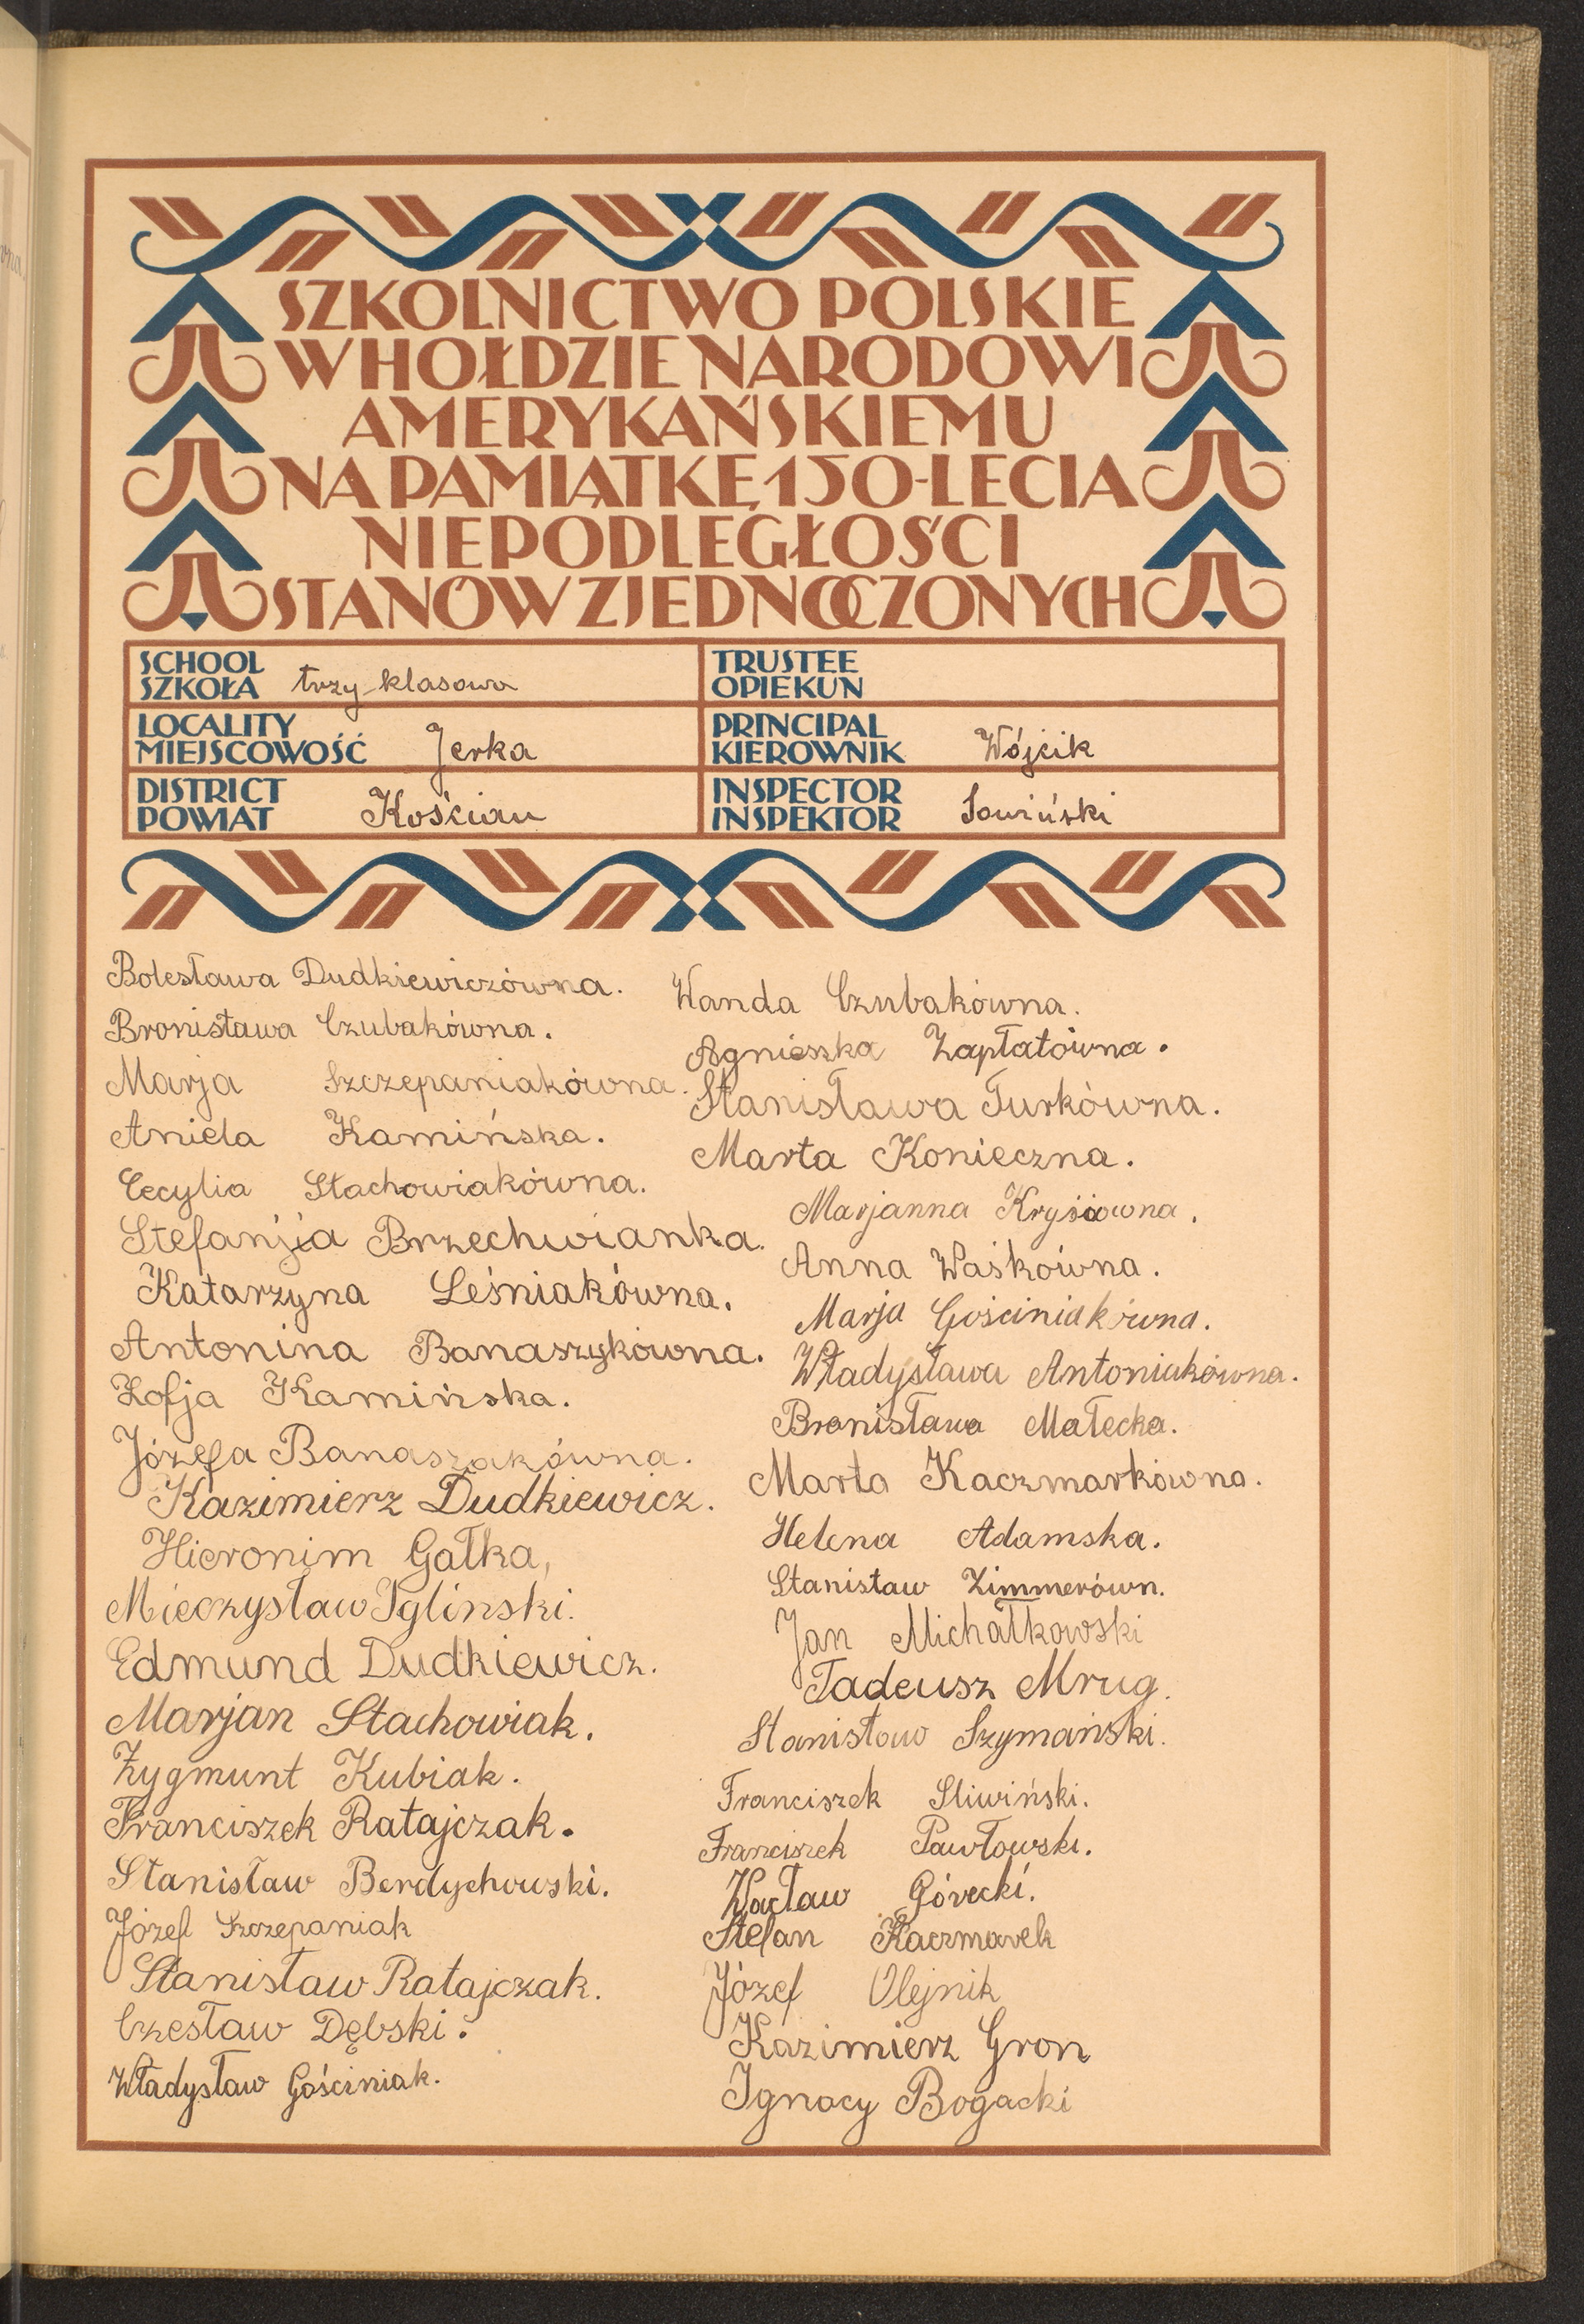 SZKOLNICTWO POLSKIE
W HOŁDZIE NARODOWI
AMERYKAŃSKIEMU
NA PAMIĄTKĘ 150-LECIA
NIEPODLEGŁOŚCI
STANÓW ZJEDNOCZONYCH
SCHOOL
SZKOŁA trzy-klasowa
TRUSTEE
OPIEKUN
LOCALITY
MIEJSCOWOŚĆ Jerka
PRINCIPAL
KIEROWNIK Wójcik
DISTRICT
POWIAT Kościan
INSPECTOR
INSPEKTOR Sowiński
Bolesława Dudkiewiczówna.
Bronisława Czubakówna.
Marja Szczepaniakówna.
Aniela Kamińska.
Cecylia Stachowiakówna.
Stefanja Brzechwianka.
Katarzyna Leśniakówna.
Antonina Banaszykówna.
Zofja Kamińska.
Józefa Banaszakówna.
Kazimierz Dudkiewicz.
Hieronim Gałka,
Mieczysław Iglinski.
Edmund Dudkiewicz.
Marjan Stachowiak.
Zygmunt Kubiak.
Franciszek Ratajczak.
Stanisław Berdychowski.
Józef Szczepaniak
Stanisław Ratajczak.
Czesław Dębski.
Władysław Gościniak.
Wanda Czubakówna.
Agnieszka Zapłatówna.
Stanisława Turkówna.
Marta Konieczna.
Marjanna Krysiówna.
Anna Waśkówna.
Marja Gościniakówna.
Władysława Antoniakówna.
Bronisława Małecka.
Marta Kaczmarkówna.
Helena Adamska.
Stanisław Zimmerówn.
Jan Michałkowski
Tadeusz Mrug.
Stanisław Szymański.
Franciszek Sliwiński.
Franciszek Pawłowski.
Wacław Górecki.
Stefan Kaczmarek
Józef Olejnik
Kazimierz Gron
Ignacy Bogacki